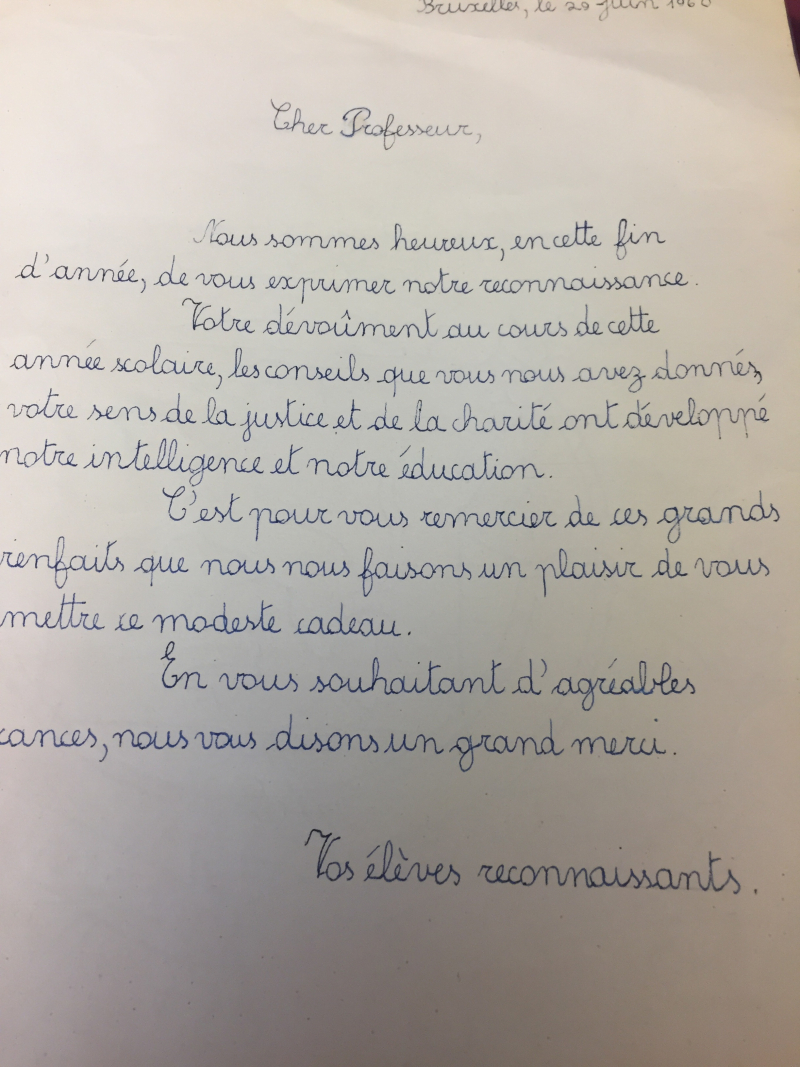 Bruxelles, le 29 juin 1960
Cher Professeur,
Nous sommes heureux, en cette fin
d'année, de vous exprimer notre reconnaissance.
Votre dévoûment au cours de cette
année scolaire, les conseils que vous nous avez donnés,
votre sens de la justice et de la charité ont développé
notre intelligence et notre éducation.
C'est pour vous remercier de ces grands
ienfaits que nous nous faisons un plaisir de vous
mettre ce modeste cadeau.
En vous souhaitant d'agréables
cances, nous vous disons un grand merci.
Vos élèves reconnaissants.